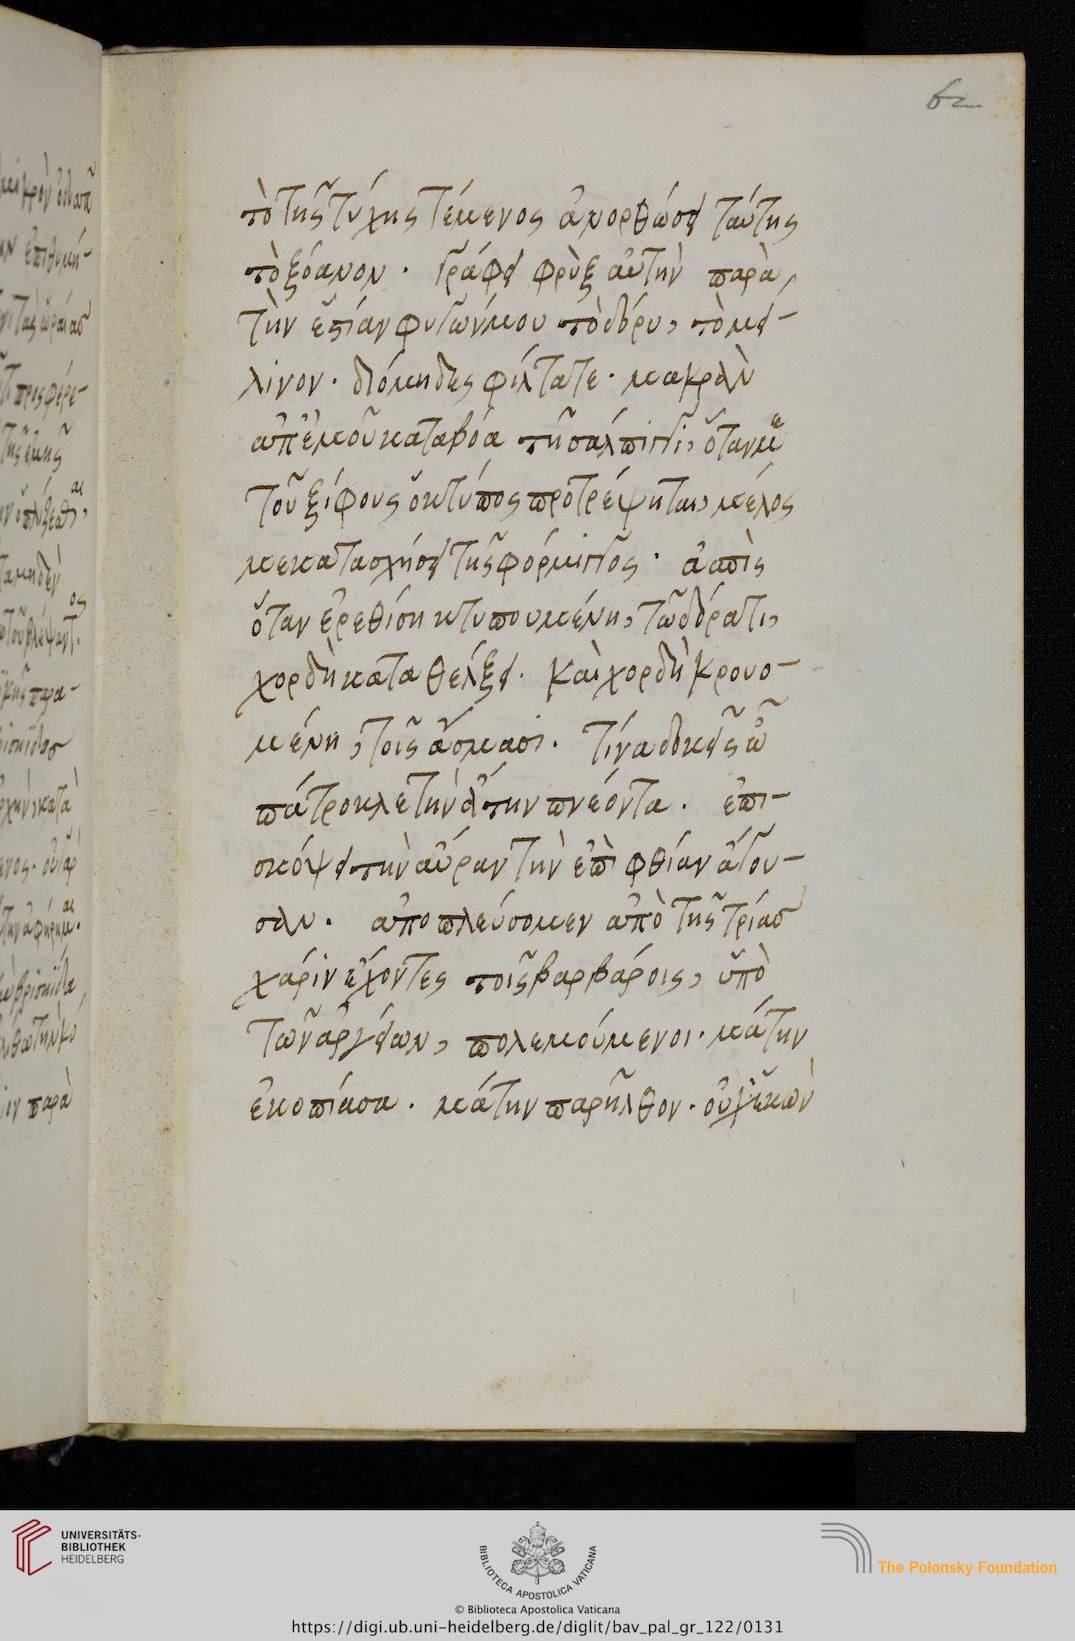 62
τὸ τῆς τύχης τέμενος ἀνορθώσει ταύτης
τὸ ξόανον. γράφει φρὺξ αὐτὴν παρὰ
τὴν ἑστίαν φυγὼν μου τὸ δόρυ, τὸ μεί-
λινον. διόμηδες φίλτατε. μακρὰν
ἀπ' ἐμοῦ καταβόα τῆ σάλπιγγι, ὅταν με
τοῦ ξίφους ὁ κτύπος προτρέψηται, μέλος
με κατασχήσει τῆς φόρμιγγος. ἀσπὶς
ὅταν ἐρεθίση κτυπουμένη, τῶ δόρατι,
χορδὴ καταθέλξει. καὶ χορδὴ κρουο-
μένη, τοῖς ἄσμασι. τίνα δοκεῖς ὦ
πάτροκλε τὴν πνέοντα. ἐπι-
σκόψει τὴν αὔραν τὴν ἐπὶ φθίαν ἄγου-
σαν. ἀποπλεύσομεν ἀπὸ τῆς τρίας
χάριν ἔχοντες τοῖς βαρβάροις, ὑπὸ
τῶν ἀργείων, πολεμούμενοι. μάτην
ἐκοπίασα. μάτην παρῆλθον. οὐχ ἑκὼν
UNIVERSITÄTS-
BIBLIOTHEK
HEIDELBERG
BIBLIOTECA APOSTOLICA VATICANA
The Polonsky Foundation
© Biblioteca Apostolica Vaticana
https://digi.ub.uni-heidelberg.de/diglit/bav_pal_gr_122/0131